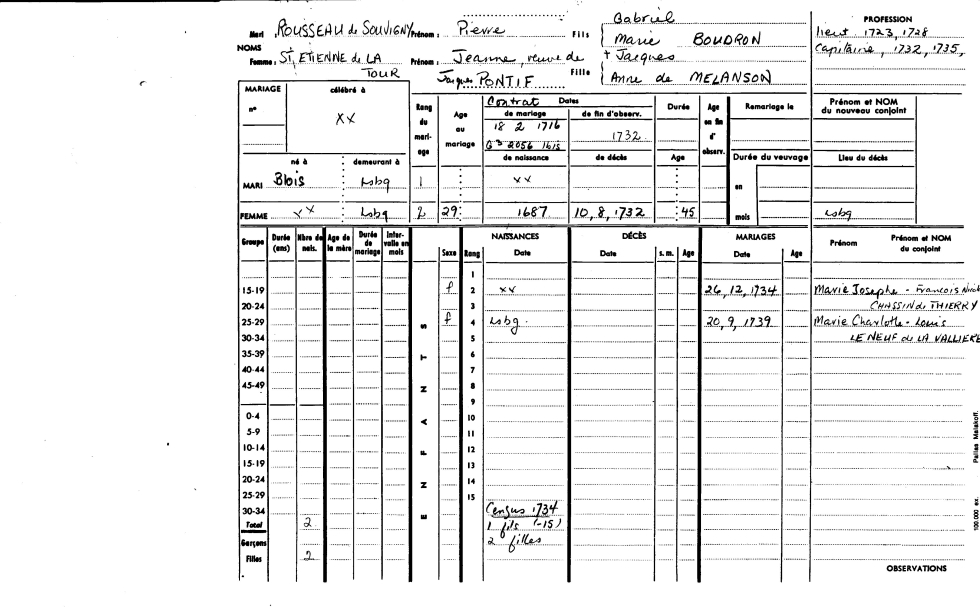 Gabriel
Mari ROUSSEAU de SOUVIGNY Prénom : Pierre Fils Marie BOUDRON
PROFESSION
lieut 1723, 1728
Capitaine, 1732, 1735,
NOMS
Femme : St ETIENNE de LA TOUR Prénom : Jeanne, veuve de Jaques PONTIF Fille + Jacques
Anne de MELANSON
MARIAGE célébré à
n° XX
Rang du mariage
Age au mariage
Contrat Dates
de mariage de fin d'observ.
18 2 1716
G3 2056 1bis 1732
Durée
Age en fin d'observ.
Remariage le
Prénom et NOM du nouveau conjoint
né à demeurant à de naissance de décès Age Durée du veuvage Lieu du décès
MARI Blois Lsbg 1 XX en
FEMME XX Lsbg 2 29 1687 10, 8, 1732 45 mois Lsbg
Groupe Durée (ans) Nbre de nais. Age de la mère Durée de mariage Intervalle en mois
Sexe Rang NAISSANCES Date DÉCÈS Date s. m. Age MARIAGES Date Age Prénom Prénom et NOM du conjoint
1
15-19 f 2 XX 26, 12, 1734 Marie Josephe - Francois
20-24 3 CHASSIN de THIERRY
25-29 f 4 Lsbg. 20, 9, 1739 Marie Charlotte - Louis
30-34 5 LE NEUF de LA VALLIERE
35-39 6
40-44 7
45-49 8
9
0-4 10
5-9 11
10-14 12
15-19 13
20-24 14
25-29 15
30-34 Census 1734
Total 2 1 fils (-15)
Garçons 2 filles
Filles 2
ENFANTS
OBSERVATIONS
100.000 ex. Pallas Malakoff.